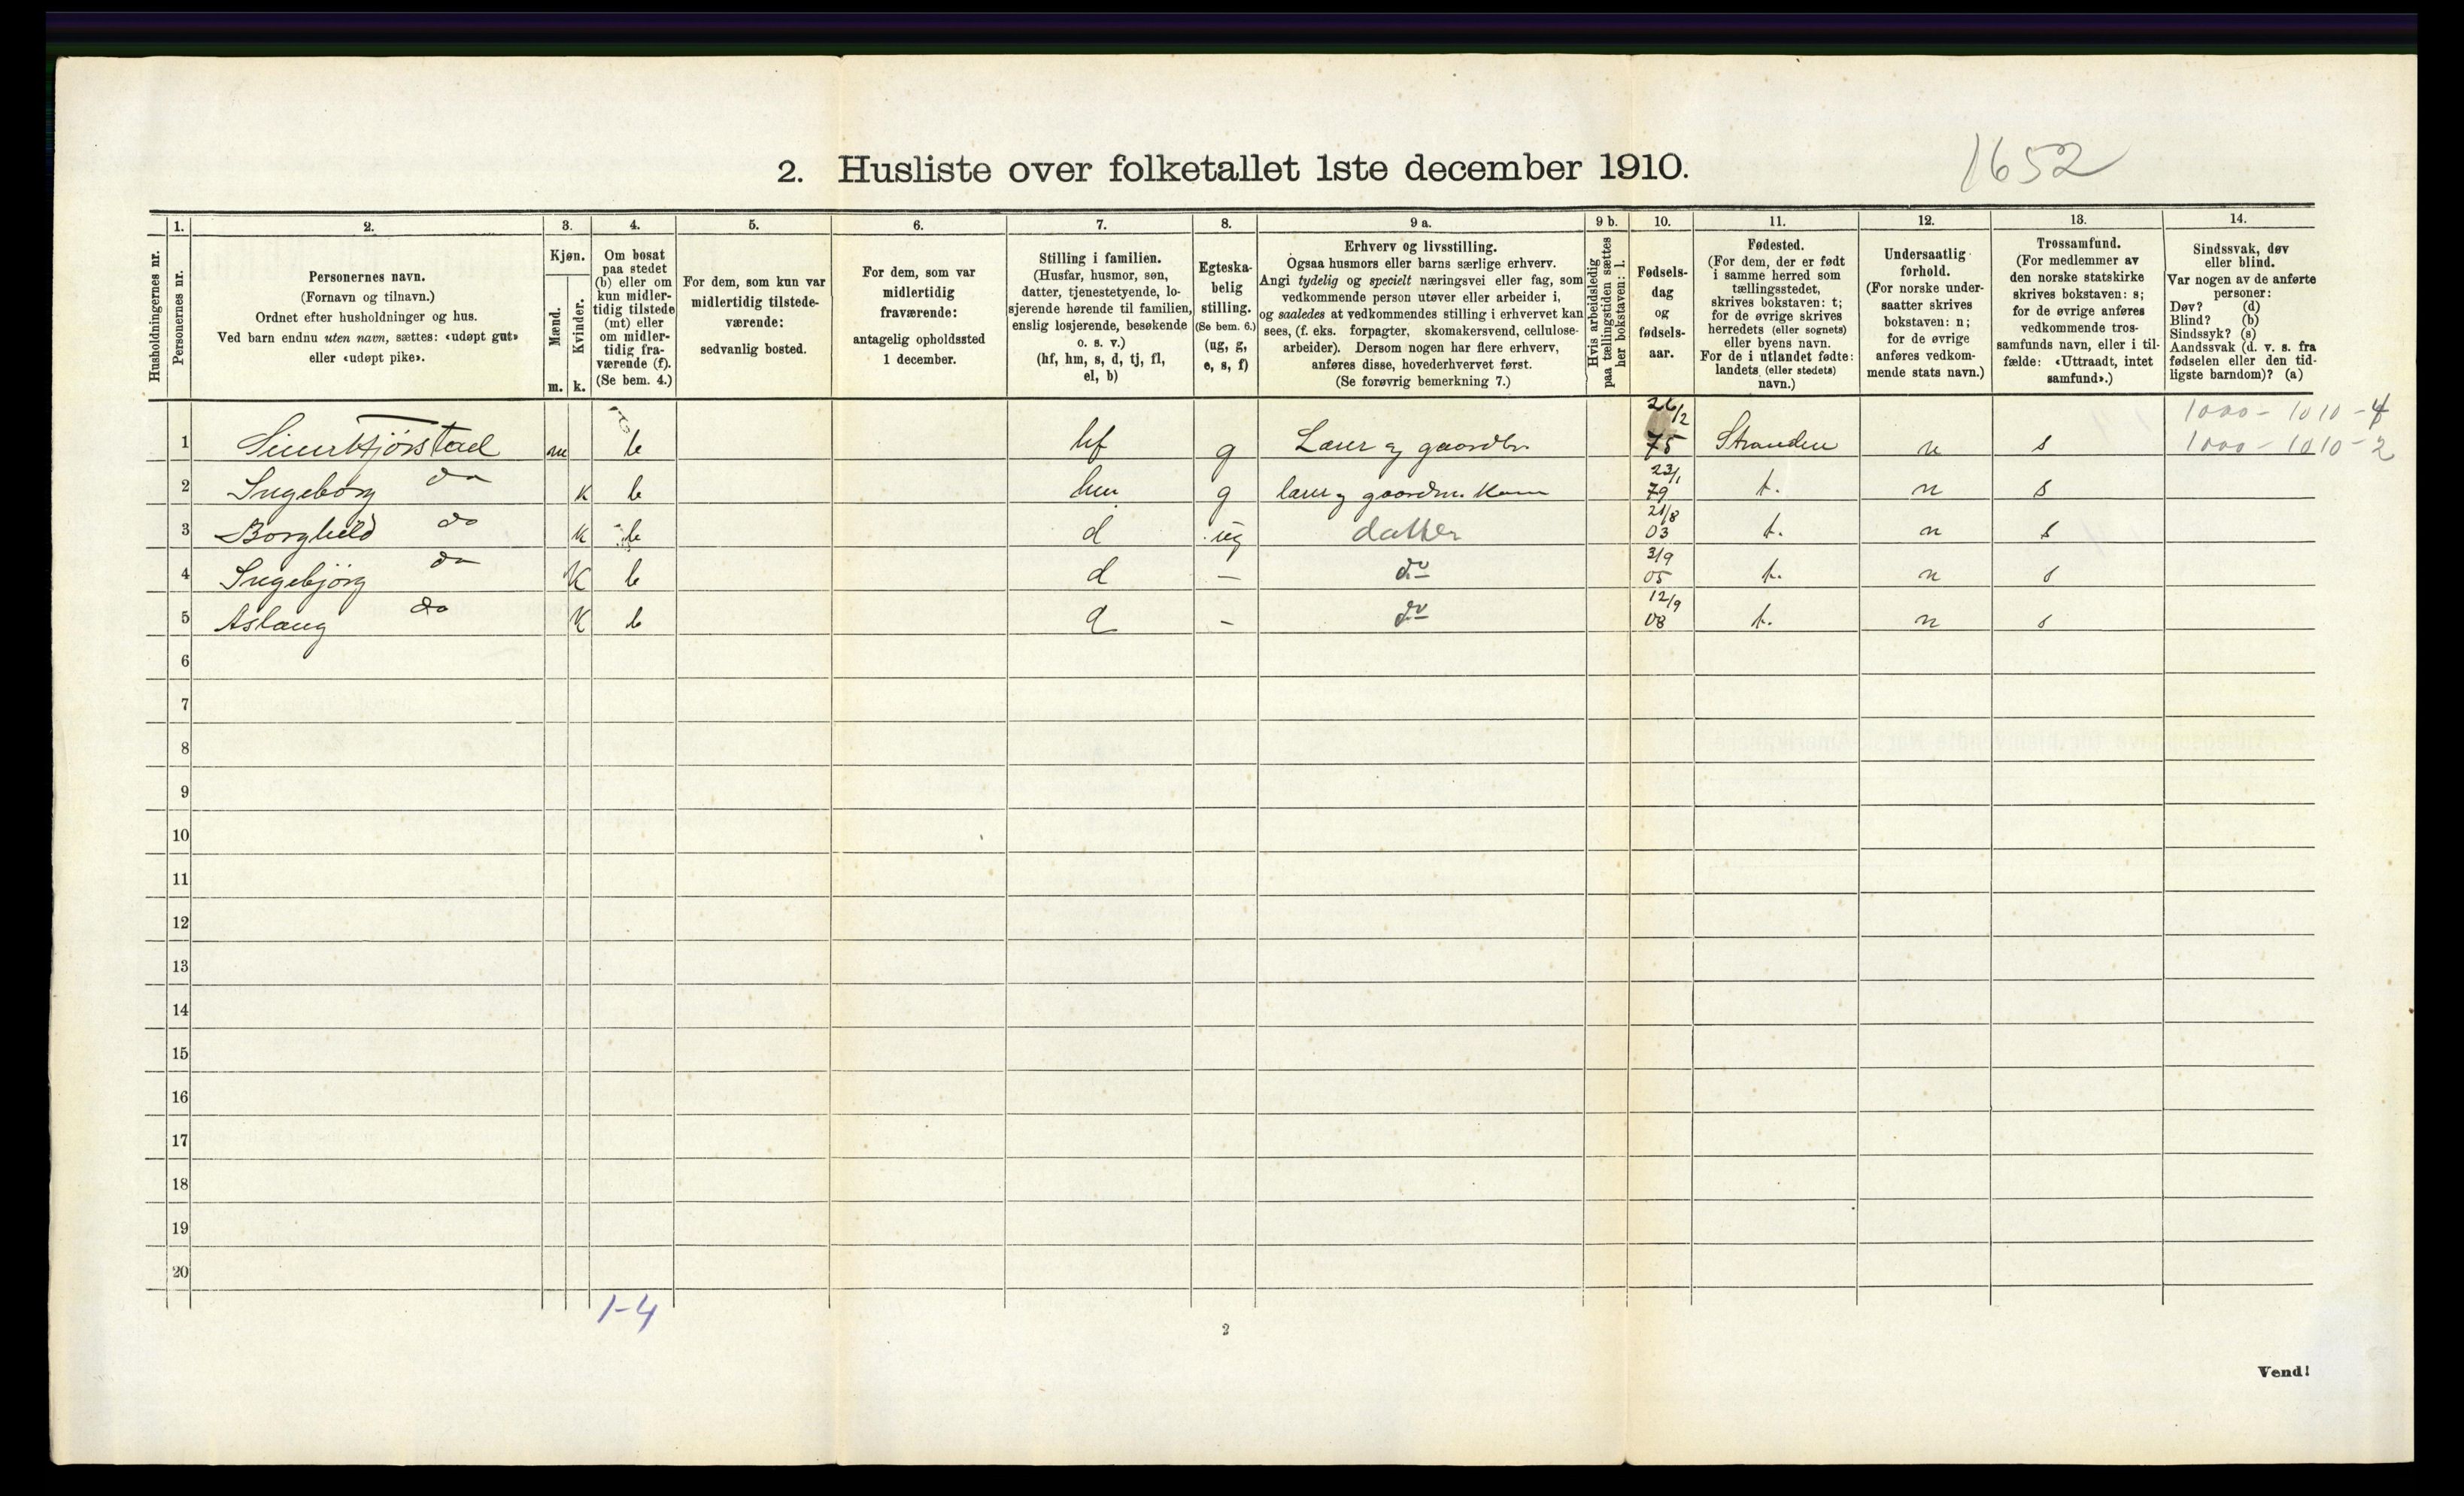 1652
2. Husliste over folketallet 1ste december 1910.
1. 2. 3. 4. 5. 6. 7. 8. 9 a. 9 b. 10. 11. 12. 13. 14.
Husholdningernes nr.
Personernes nr.
Personernes navn.
(Fornavn og tilnavn.)
Ordnet efter husholdninger og hus.
Ved barn endnu uten navn, sættes: «udøpt gut»
eller «udøpt pike».
Kjøn.
Mænd.
m.
Kvinder.
k.
Om bosat
paa stedet
(b) eller om
kun midler-
tidig tilstede
(mt) eller
om midler-
tidig fra-
værende (f).
(Se bem. 4.)
For dem, som kun var
midlertidig tilstede-
værende:
sedvanlig bosted.
For dem, som var
midlertidig
fraværende:
antagelig opholdssted
1 december.
Stilling i familien.
(Husfar, husmor, søn,
datter, tjenestetyende, lo-
sjerende hørende til familien,
enslig losjerende, besøkende
o. s. v.)
(hf, hm, s, d, tj, fl,
el, b)
Egteska-
belig
stilling.
(Se bem. 6.)
(ug, g,
e, s, f)
Erhverv og livsstilling.
Ogsaa husmors eller barns særlige erhverv.
Angi tydelig og specielt næringsvei eller fag, som
vedkommende person utøver eller arbeider i,
og saaledes at vedkommendes stilling i erhvervet kan
sees, (f. eks. forpagter, skomakersvend, cellulose-
arbeider). Dersom nogen har flere erhverv,
anføres disse, hovederhvervet først.
(Se forøvrig bemerkning 7.)
Hvis arbeidsledig
paa tællingstiden sættes
her bokstaven: l.
Fødsels-
dag
og
fødsels-
aar.
Fødested.
(For dem, der er født
i samme herred som
tællingsstedet,
skrives bokstaven: t;
for de øvrige skrives
herredets (eller sognets)
eller byens navn.
For de i utlandet fødte:
landets (eller stedets)
navn.)
Undersaatlig
forhold.
(For norske under-
saatter skrives
bokstaven: n;
for de øvrige
anføres vedkom-
mende stats navn.)
Trossamfund.
(For medlemmer av
den norske statskirke
skrives bokstaven: s;
for de øvrige anføres
vedkommende tros-
samfunds navn, eller i til-
fælde: «Uttraadt, intet
samfund».)
Sindssvak, døv
eller blind.
Var nogen av de anførte
personer:
Døv? (d)
Blind? (b)
Sindssyk? (s)
Aandssvak (d. v. s. fra
fødselen eller den tid-
ligste barndom)? (a)
1000 - 1010 - 4
1 m b hf g Lærer og gaardbr. 26/2 75 Stranden n s 1000 - 1010 - 2
2 Ingeborg do k b hm g lærer og gaardm. Kone 23/1 79 t. n s
3 Borghild do k b d ug datter 21/8 03 t. n s
4 Ingebjørg do K b d — do 3/9 05 t. n s
5 Aslaug do K b d - do 12/9 08 t. n s
6
7
8
9
10
11
12
13
14
15
16
17
18
19
20
1-4
2
Vend!